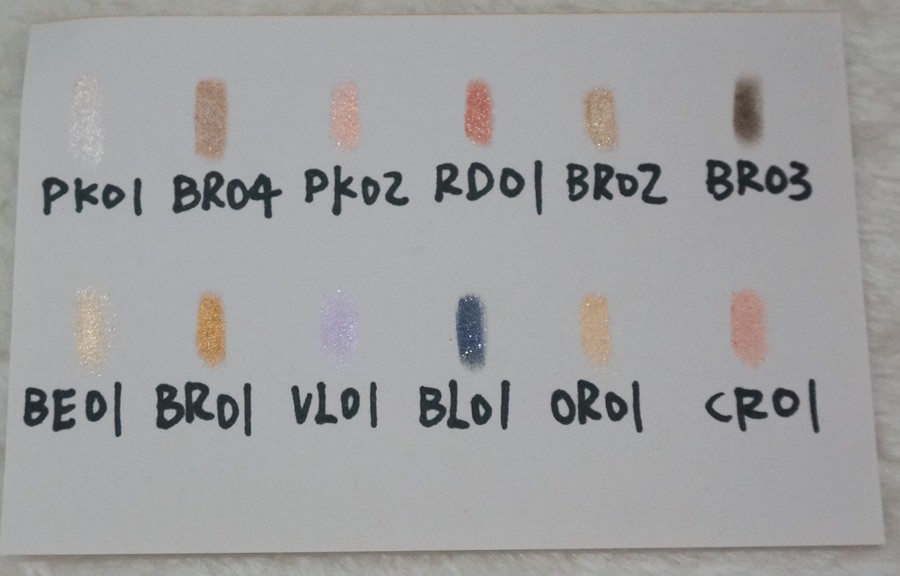 PK01 BR04 PK02 RD01 BR02 BR03
BE01 BR01 VL01 BL01 OR01 CR01